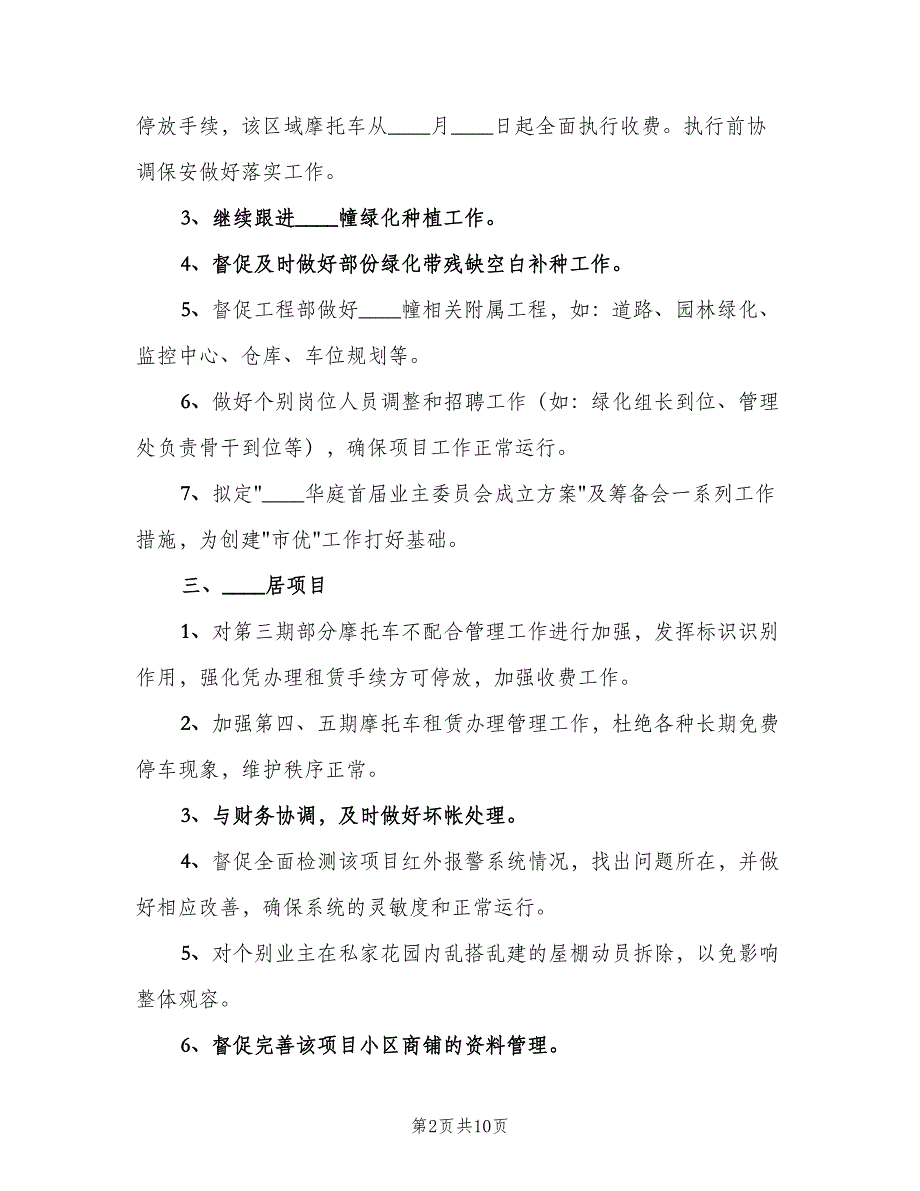 停放手续，该区域摩托车从____月____日起全面执行收费。执行前协
调保安做好落实工作。
3、继续跟进____幢绿化种植工作。
4、督促及时做好部份绿化带残缺空白补种工作。
5、督促工程部做好____幢相关附属工程，如：道路、园林绿化、
监控中心、仓库、车位规划等。
6、做好个别岗位人员调整和招聘工作（如：绿化组长到位、管理
处负责骨干到位等），确保项目工作正常运行。
7、拟定"____华庭首届业主委员会成立方案"及筹备会一系列工作
措施，为创建"市优"工作打好基础。
三、____居项目
1、对第三期部分摩托车不配合管理工作进行加强，发挥标识识别
作用，强化凭办理租赁手续方可停放，加强收费工作。
2、加强第四、五期摩托车租赁办理管理工作，杜绝各种长期免费
停车现象，维护秩序正常。
3、与财务协调，及时做好坏帐处理。
4、督促全面检测该项目红外报警系统情况，找出问题所在，并做
好相应改善，确保系统的灵敏度和正常运行。
5、对个别业主在私家花园内乱搭乱建的屋棚动员拆除，以免影响
整体观容。
6、督促完善该项目小区商铺的资料管理。
第2页共10页